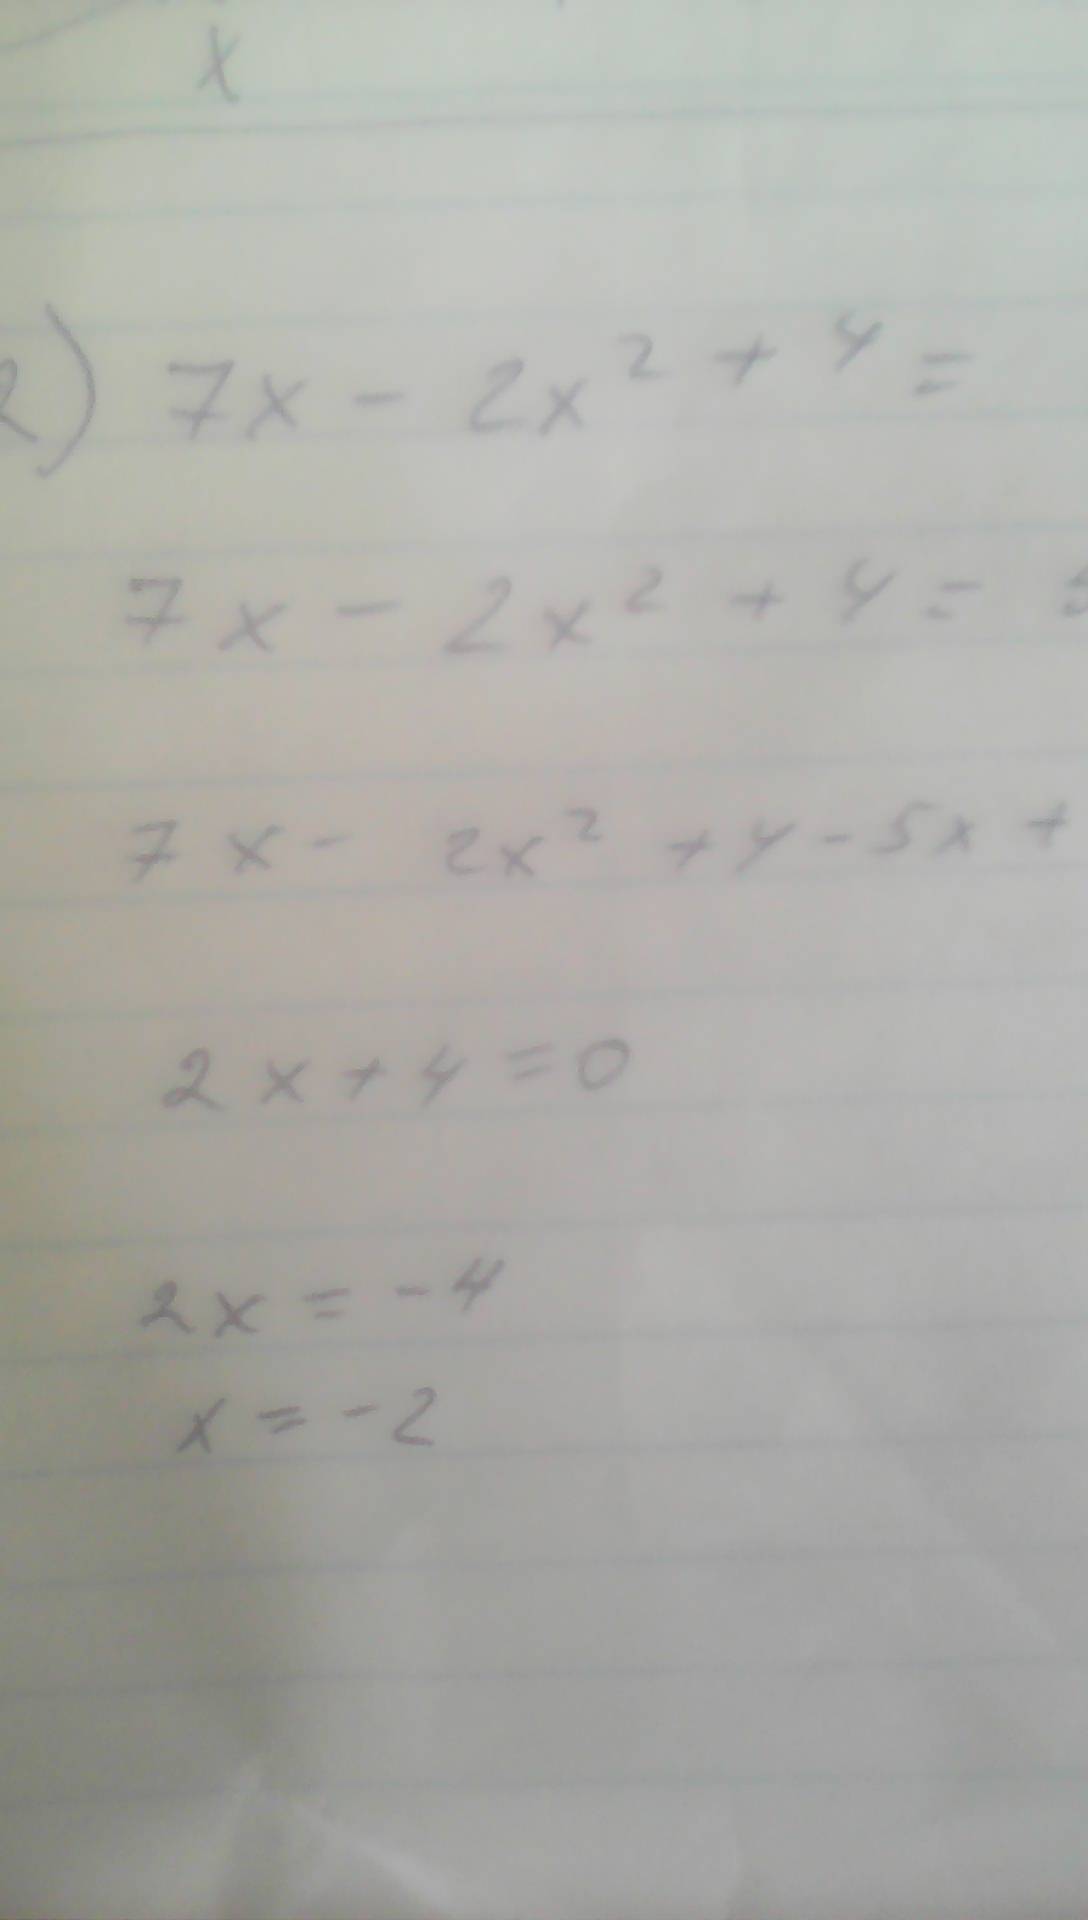 x
2) 7x - 2x² + 4 =
7x - 2x² + 4 = 5
7x - 2x² + 4 - 5x +
2x + 4 = 0
2x = -4
x = -2